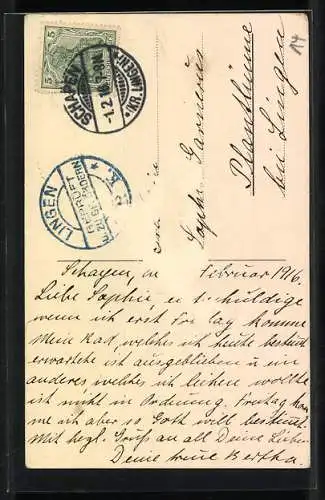 5
5
SCHAPEN
1.2.16.2-3N.
*(KR. LINGEN)*
14
LINGEN
GEPRÜFT
ZU BEFÖRDERN
Sophie
Plantlünne
bei Lingen
Schapen, Februar 1916.
Liebe Sophie, entschuldige
wenn ich erst Freitag komme
Mein Rad, welches ich heute bestimmt
erwartete ist ausgeblieben u. ein
anderes welches ich leihen wollte
ist nicht in Ordnung. Freitag kom
me ich aber so Gott will bestimmt.
Mit herzl. Gruß an all Deine Lieben
Deine treue Bertha.